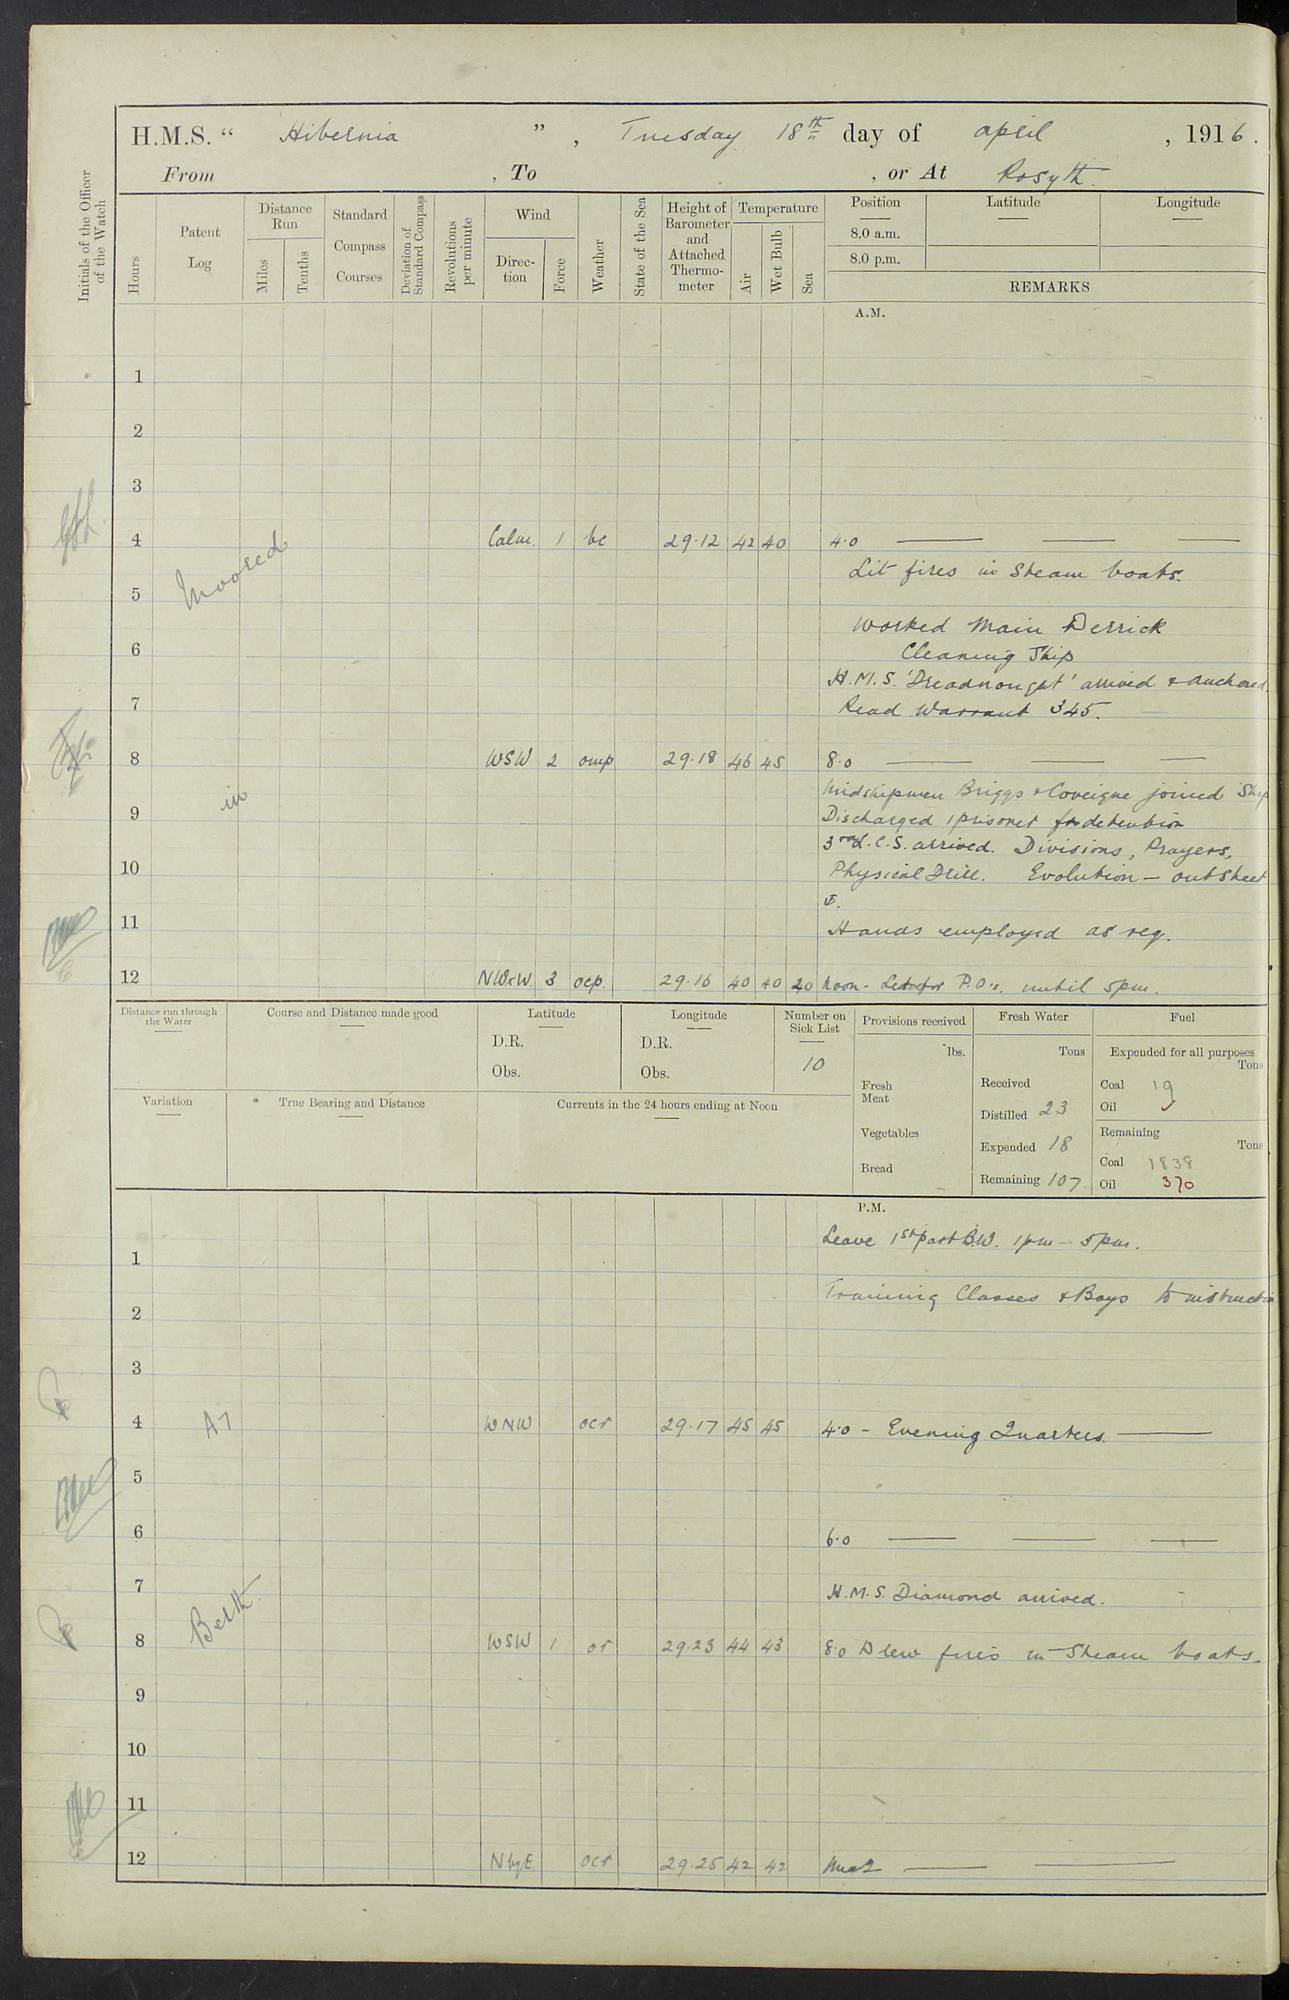 H.M.S. " Hibernia ", Tuesday 18th day of april, 1916.
From , To , or At Rosyth.
Initials of the Officer of the Watch
Hours
Patent Log
Distance Run
Miles
Tenths
Standard Compass Courses
Deviation of Standard Compass
Revolutions per minute
Wind
Direc-tion
Force
Weather
State of the Sea
Height of Barometer and Attached Thermo-meter
Temperature
Air
Wet Bulb
Sea
Position Latitude Longitude
8.0 a.m.
8.0 p.m.
REMARKS
A.M.
1
2
3
4 Calm. 1 bc 29.12 42 40 4.0
Moored
Lit fires in Steam boats.
5
Worked Main Derrick
6
Cleaning Ship
H.M.S. 'Dreadnought' arrived & anchored
7
Read Warrant 345.
8 WSW 2 omp 29.18 46 45 8.0
in
Midshipmen Briggs & joined Ship
9
Discharged 1 prisoner for detention
3rd L.C.S. arrived. Divisions, Prayers,
10
Physical Drill. Evolution - out Sheet
11
Hands employed as req.
12 NWxW 3 ocp. 29.16 40 40 40 Noon - Leave for P.O's. until 5pm.
Distance run through the Water
Course and Distance made good
Latitude
D.R.
Obs.
Longitude
D.R.
Obs.
Number on Sick List
10
Provisions received
lbs.
Fresh Meat
Vegetables
Bread
Fresh Water
Tons
Received
Distilled 23
Expended 18
Remaining 107
Fuel
Expended for all purposes
Tons
Coal 19
Oil
Remaining
Tons
Coal 1838
Oil 370
Variation
True Bearing and Distance
Currents in the 24 hours ending at Noon
P.M.
Leave 1st part B.W. 1pm - 5pm.
1
Training Classes & Boys to instruction
2
3
4 A7 WNW ocr 29.17 45 45 4.0 - Evening Quarters.
5
6 6.0
7 H.M.S. Diamond arrived.
Berth.
8 WSW 1 or 29.23 44 43 8.0 Drew fires in Steam boats.
9
10
11
12 N by E. ocr 29.25 42 42 Mid t